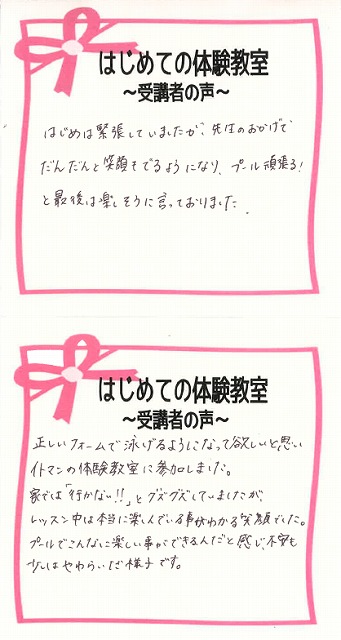 はじめての体験教室
～受講者の声～
はじめは緊張していましたが、先生のおかげで
だんだんと笑顔もでるようになり、プール頑張る!
と最後は楽しそうに言っておりました.
はじめての体験教室
～受講者の声～
正しいフォームで泳げるようになって欲しいと思い
イトマンの体験教室に参加しました。
家では「行かない!!」とグズグズしていましたが、
レッスン中は本当に楽しんでいる事がわかる笑顔でした。
プールでこんなに楽しい事ができるんだと感じ、不安も
少しはやわらいだ様子です。